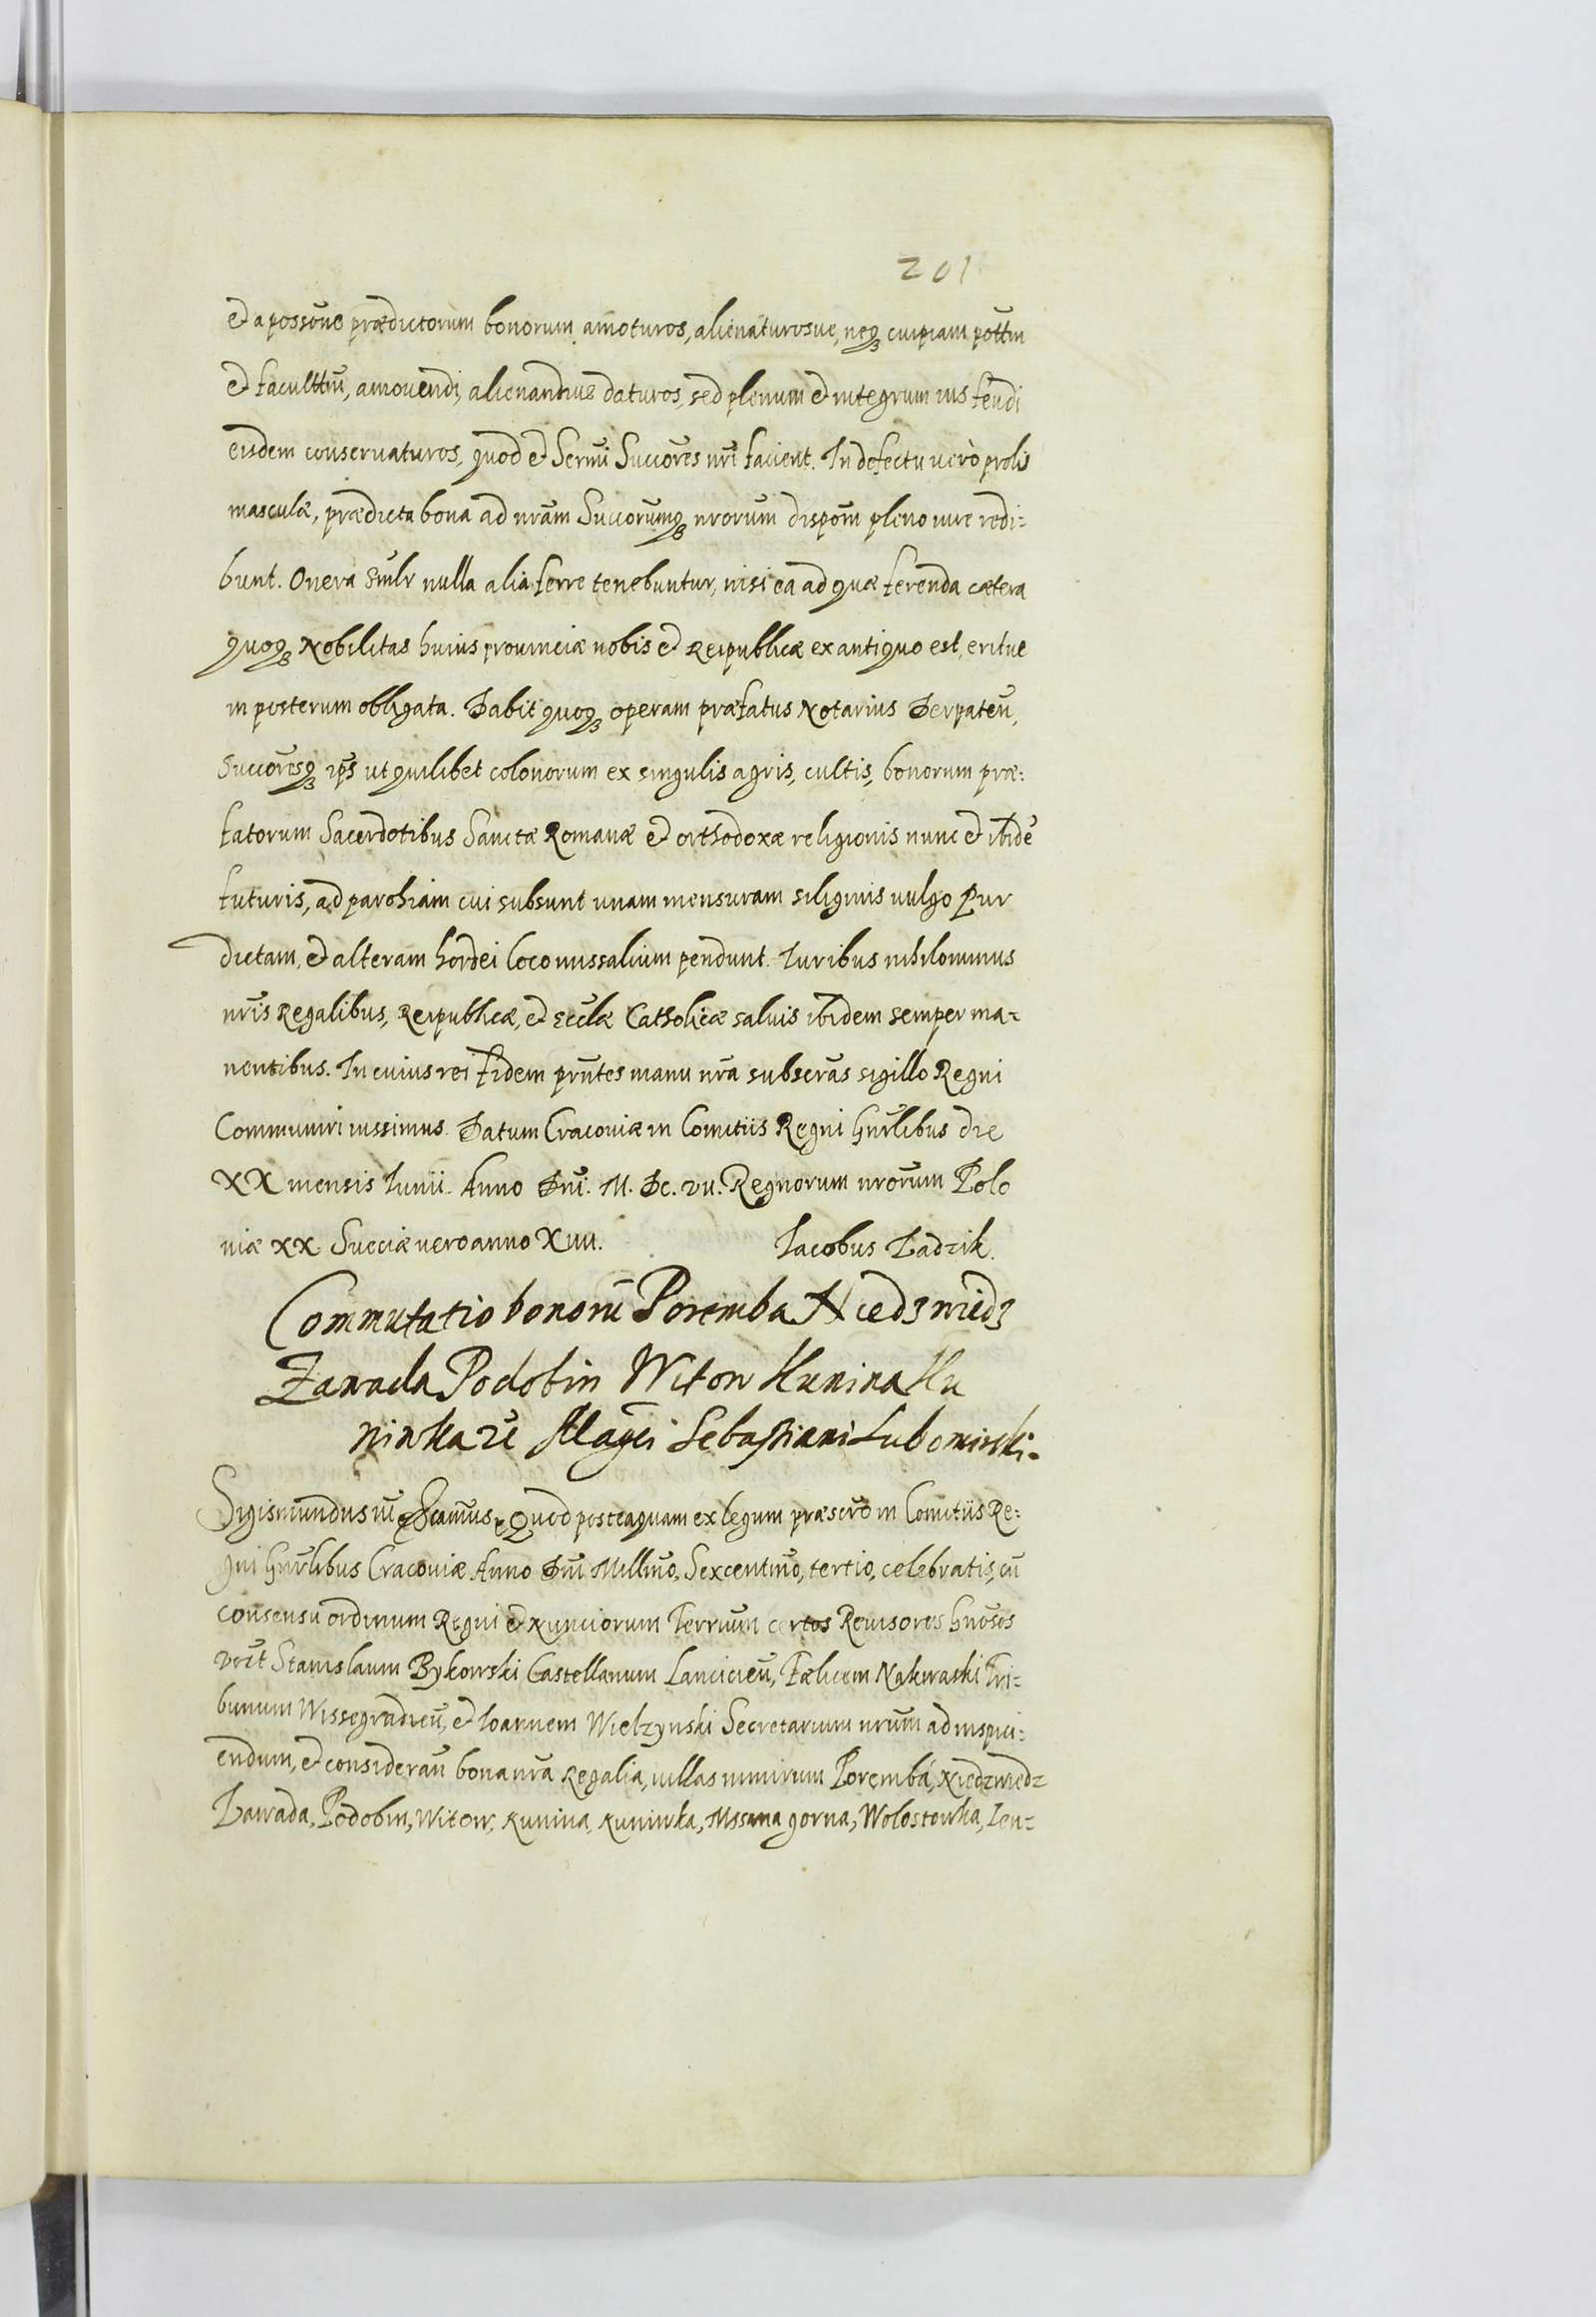 201
et a possōne prædictorum bonorum amoturos, alienaturosue, neqꝫ cuipiam potttm
et facultttm, amouendi, alienandiue daturos, sed plenum et integrum ius feudi
eisdem conseruaturos, quod et Sermi Succōres nri facient. In defectu uerò prolis
masculæ, prædicta bona ad nrām Succorumqꝫ nrorum dispom pleno iure redi=
bunt. Onera simlr nulla alia ferre tenebuntur, nisi ea ad quæ ferenda cætera
quoqꝫ Nobilitas huius prouinciæ nobis et Reipublicæ ex antiquo est, eritue
in posterum obligata. Dabit quoqꝫ operam præfatus Notarius Derpateñ,
Succoresqꝫ ips ut quilibet colonorum ex singulis agris, cultis, bonorum præ=
fatorum Sacerdotibus Sanctæ Romanæ et orthodoxæ religionis nunc et ibidē
futuris, ad parohiam cui subsunt unam mensuram siliginis uulgo Pur
dictam, et alteram hordei loco missalium pendunt. Iuribus nihilominus
nris Regalibus, Reipublicæ, et Ecclæ Catholicæ saluis ibidem semper ma=
nentibus. In cuius rei fidem prntes manu nra subscras sigillo Regni
Communiri iussimus. Datum Cracouiæ in Comitiis Regni Gnrlibus die
XX mensis Iunii. Anno Dni. M. Dc. vii. Regnorum nrorum Polo
niæ XX Sueciæ uero anno Xiiii. Iacobus Zadzik.
Commutatio bonorū Poremba Niedzwiedz
Zawada Podobin Witow Kunina Ku
ninka zē Magci Sebastiani Lubomirski.
Sigismundus iii Scamus. Quod posteaquam ex legum præscro in Comitiis Re=
gni Gnrlibus Cracouiæ Anno Dni Millmo, Sexcentmo, tertio, celebratis, cū
consensu ordinum Regni et Nunciorum Terrium certos Reuisores Gnosos
vrēt Stanislaum Bykowski Castellanum Lancicieñ, Fælicem Nakwaski Tri=
bunum Wissegradieñ, et Ioannem Wielzynski Secretarium nrum ad inspici=
endum, et considerañ bona nra Regalia, uillas nimirum Porembá, Niedzwiedz
Zawada, Podobin, Witow, Kunina, Kuninka, Mssana gorna, Wolostowka, Len=